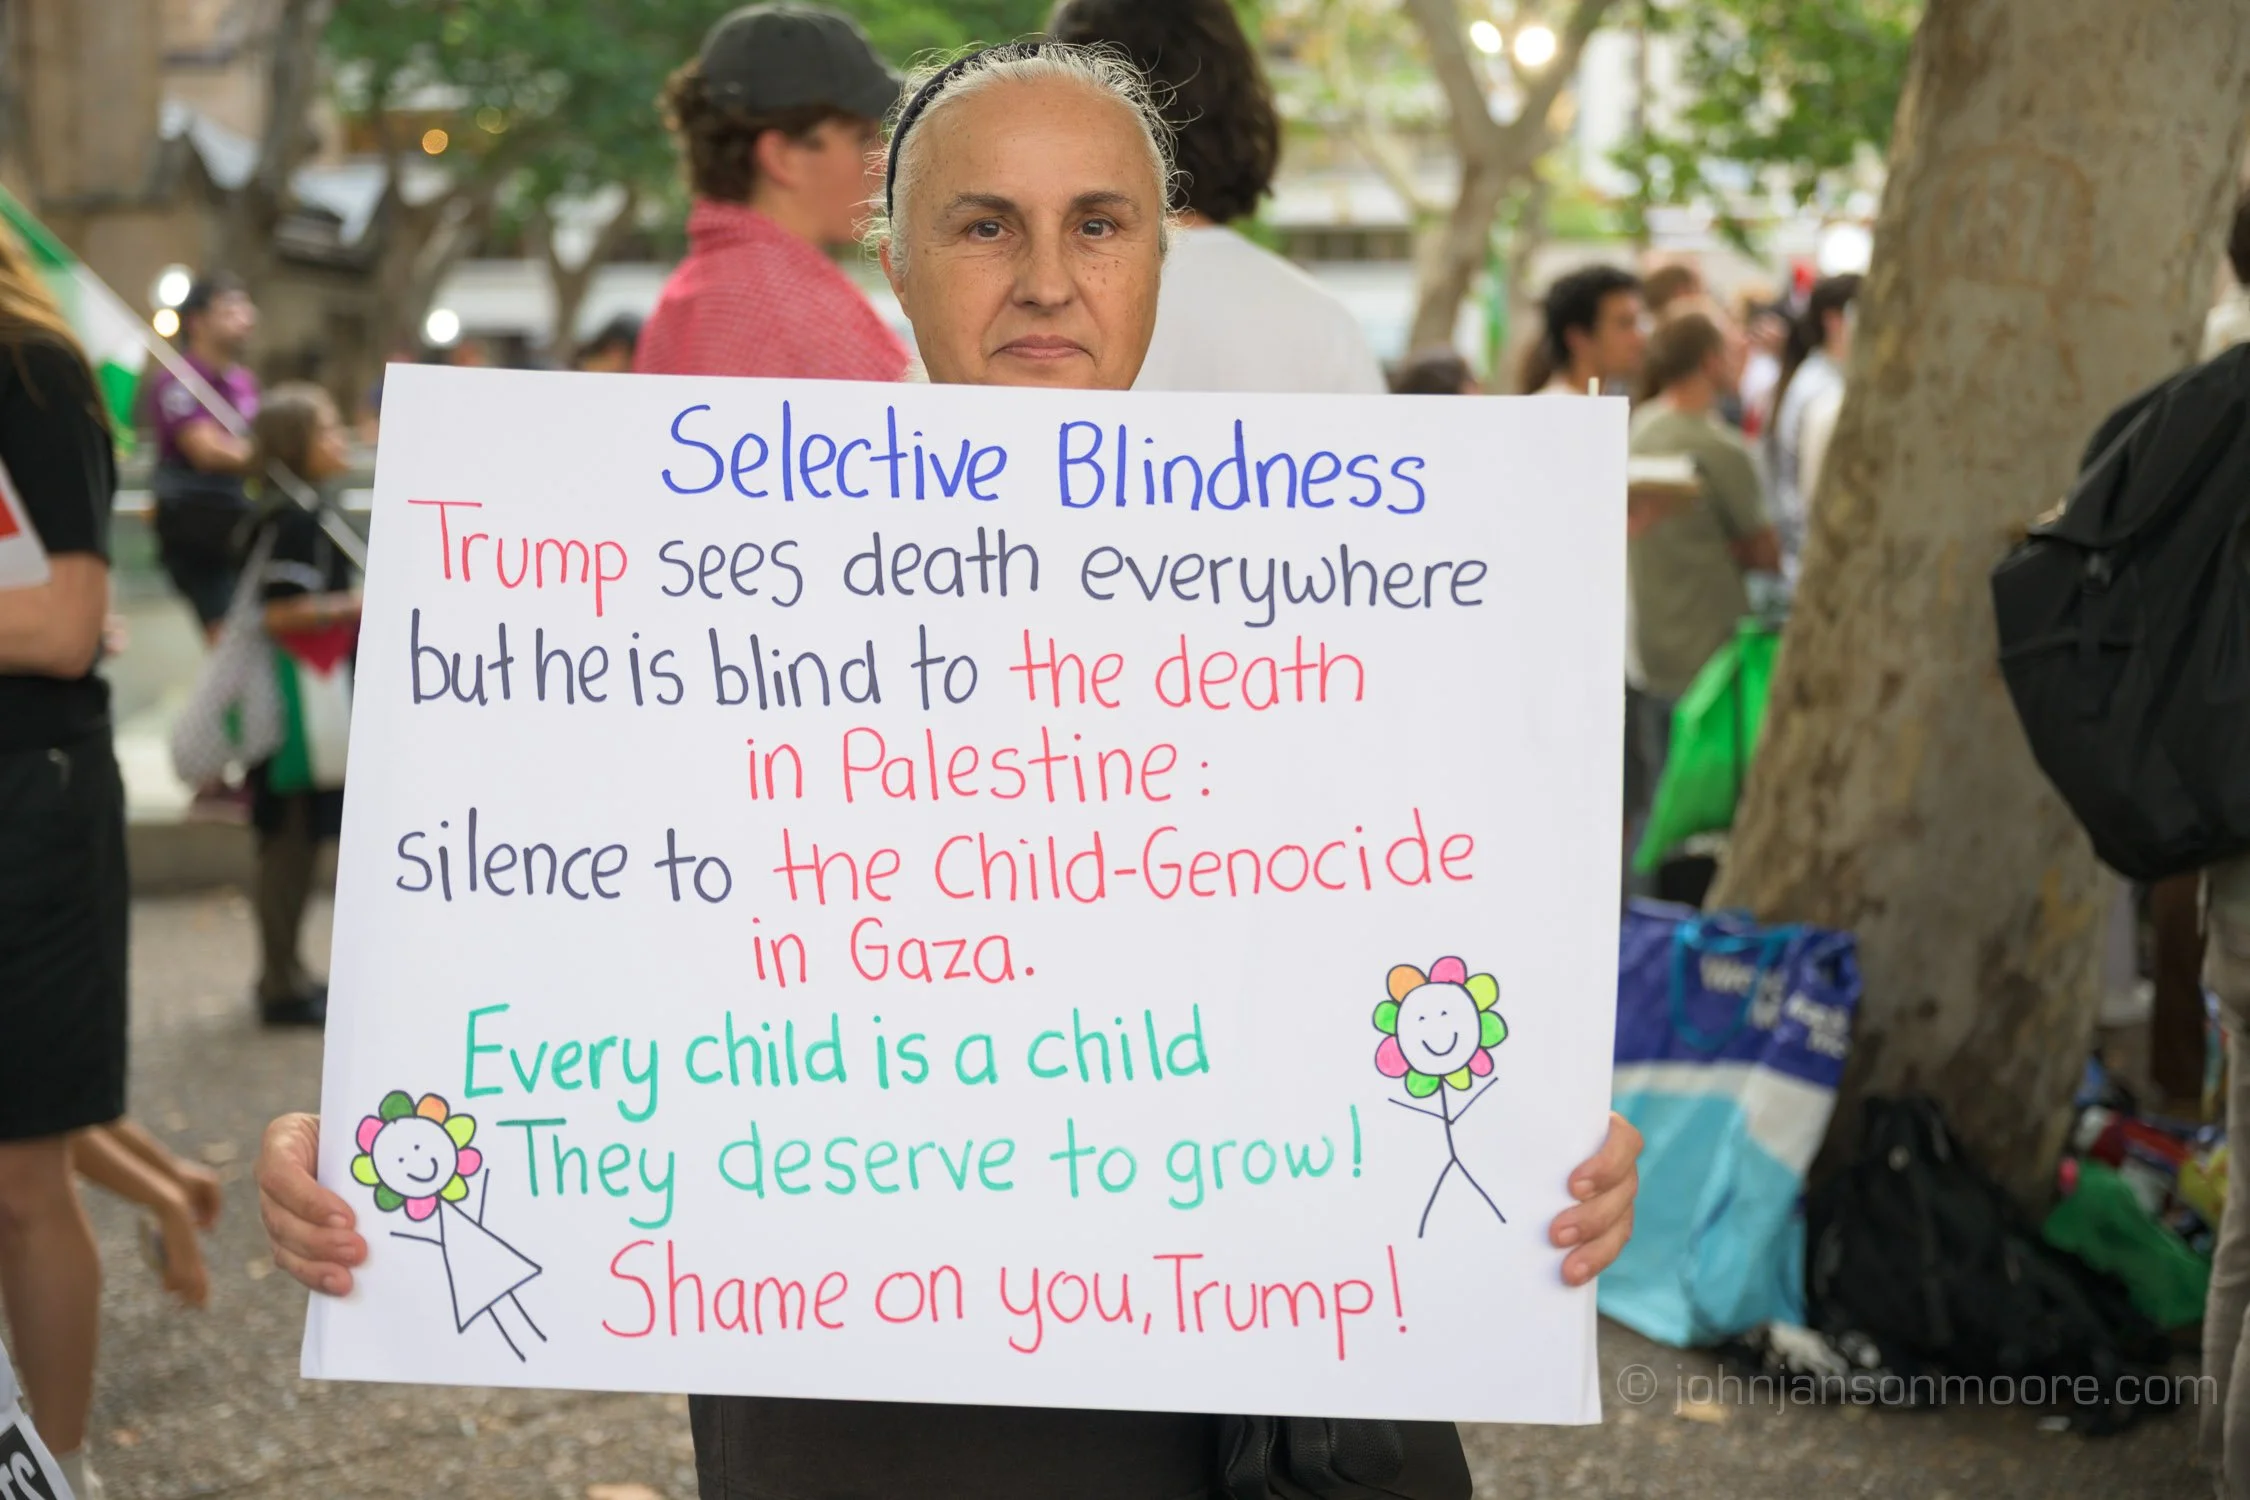 Selective Blindness
Trump sees death everywhere
but he is blind to the death
in Palestine:
silence to the Child-Genocide
in Gaza.
Every child is a child
They deserve to grow!
Shame on you, Trump!
© johnjansonmoore.com